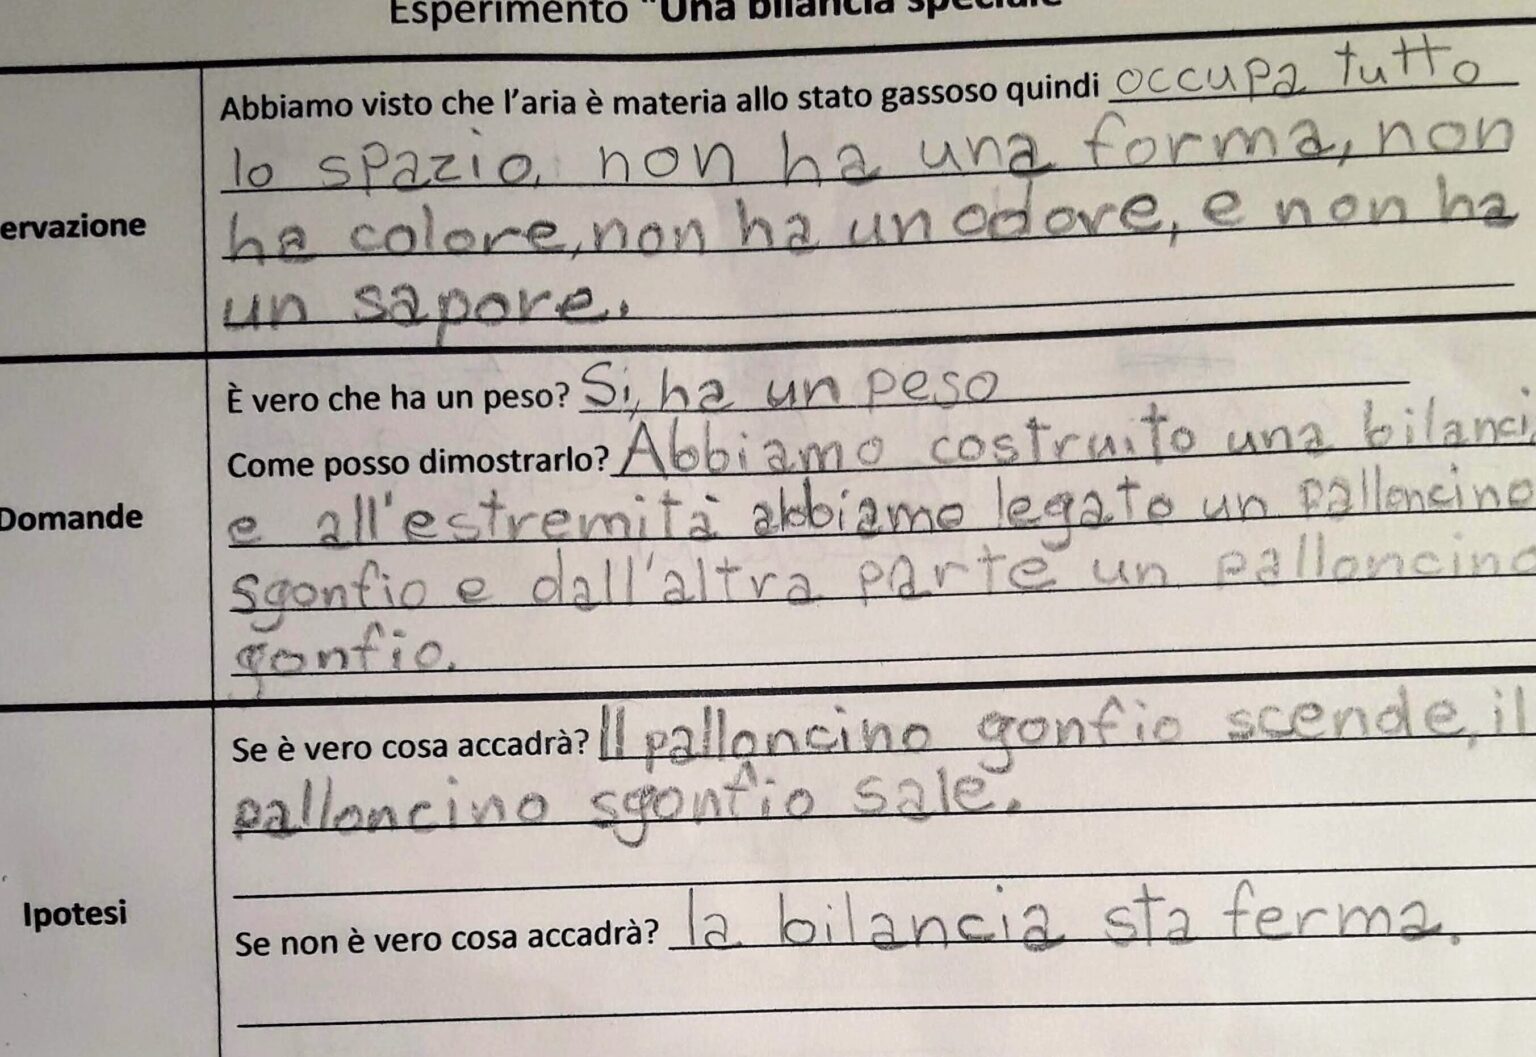 Esperimento "Una bilancia speciale
Abbiamo visto che l'aria è materia allo stato gassoso quindi occupa tutto
lo spazio, non ha una forma, non
ervazione
ha colore, non ha un odore, e non ha
un sapore.
È vero che ha un peso? Si, ha un peso
Come posso dimostrarlo? Abbiamo costruito una bilanci
Domande
e all'estremità abbiamo legato un palloncino
sgonfio e dall'altra parte un palloncino
gonfio.
Se è vero cosa accadrà? Il palloncino gonfio scende, il
palloncino sgonfio sale.
Ipotesi
Se non è vero cosa accadrà? la bilancia sta ferma.